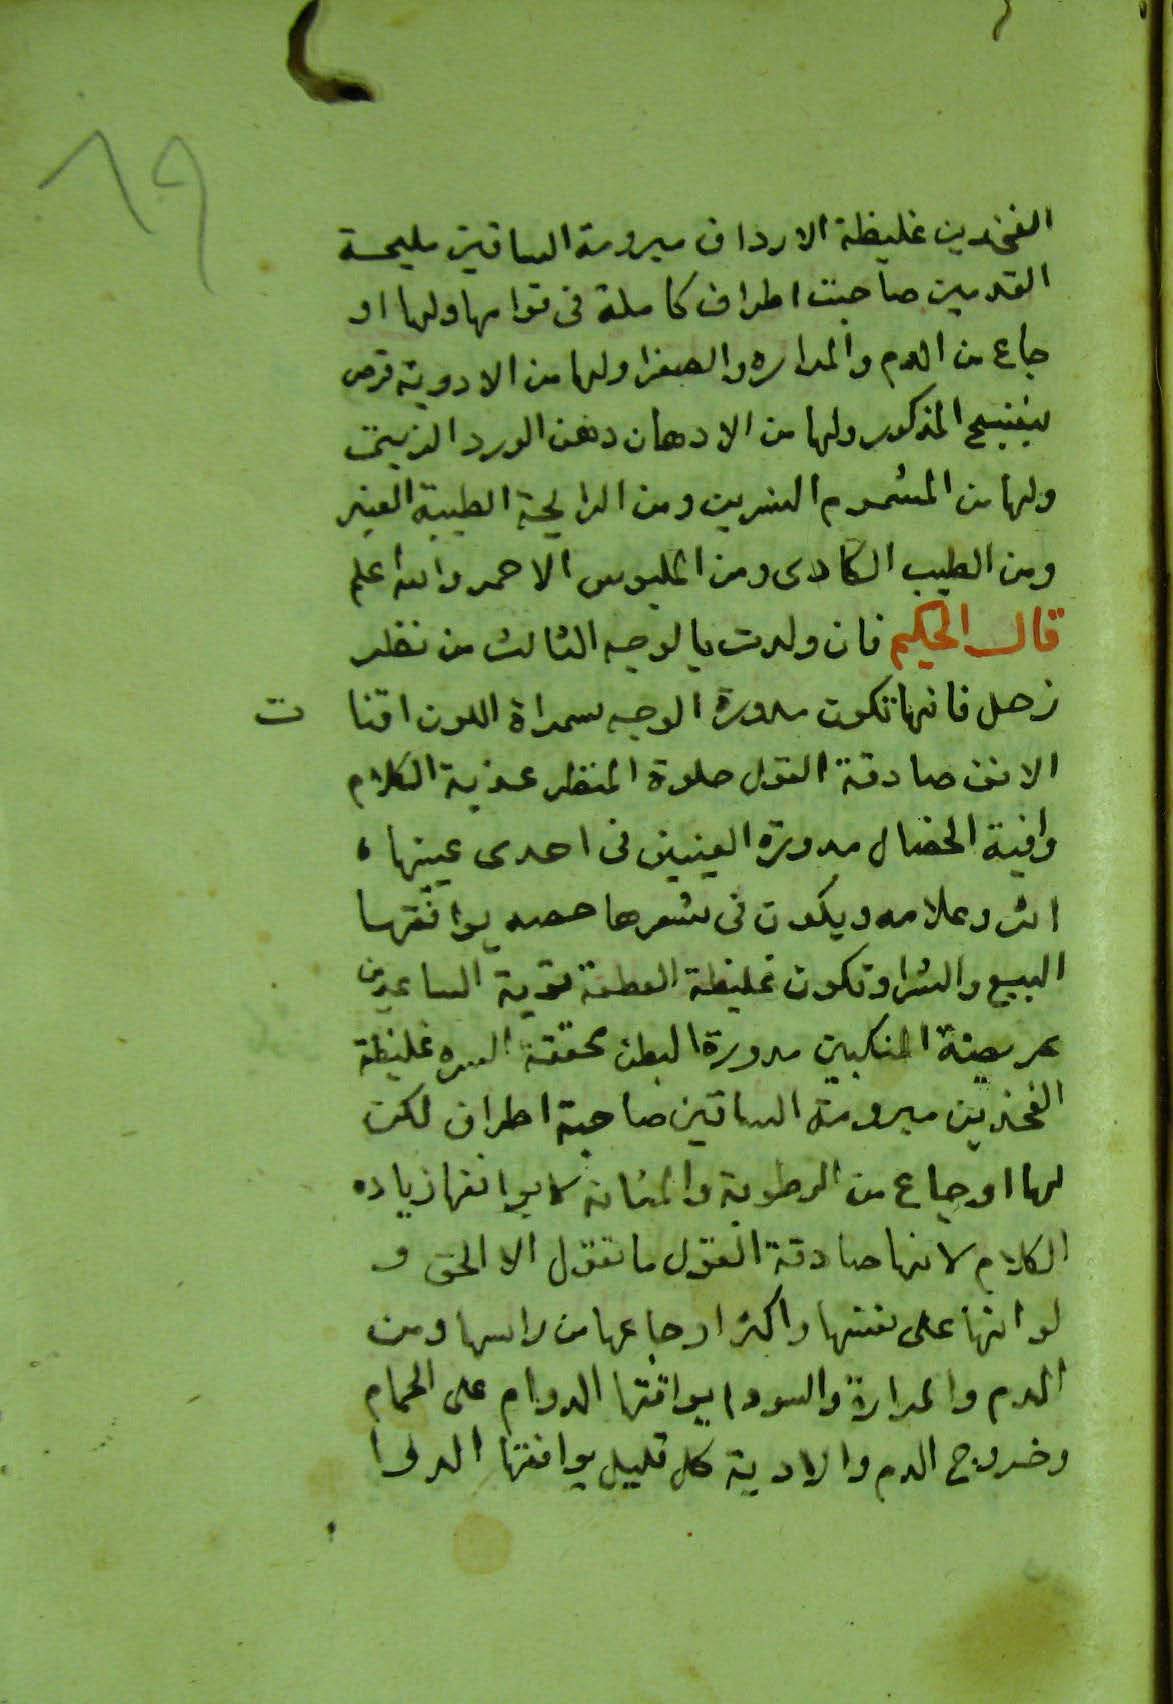 ٨٩
الفخدين غليظة الارداف مبرومة الساقين مليحة
القدمين صاحبت اطراف كاملة فى قوامها ولها او
جاع من الدم والمراره والصفرا ولها من الادوية قرص
بنفسج المذكور ولها من الادهان دهن الورد الزيت
ولها من المشموم النسرين ومن الرايحة الطيبة العنبر
ومن الطيب الكادى ومن الملبوس الاحمر والله اعلم
قال الحكيم فان ولدت بالوجه الثالث من نظر
زحل فانها تكون مدورة الوجه سمراة اللون اقنا ت
الانف صادقة القول حلوة المنظر عذبة الكلام
وافية الخصال مدورة العينين فى احدى عينها
اثر وعلامه ويكون فى شعرها حصه يوافقها
البيع والشرا وتكون غليظة العطفة قوية الساعدين
عريضة المنكبين مدورة البطن محققة السره غليظة
الفخذين مبرومة الساقين صاحبة اطراف لكن
لها اوجاع من الرطوبة والمثانة لا يوافقها زياده
الكلام لانها صادقة القول ما تقول الا الحق و
لو انها على نفسها واكثر اوجاعها من راسها ومن
الدم والمرارة والسودا يوافقها الدوام على الحمام
وخروج الدم والادية كل قليل يوافقها الدوا